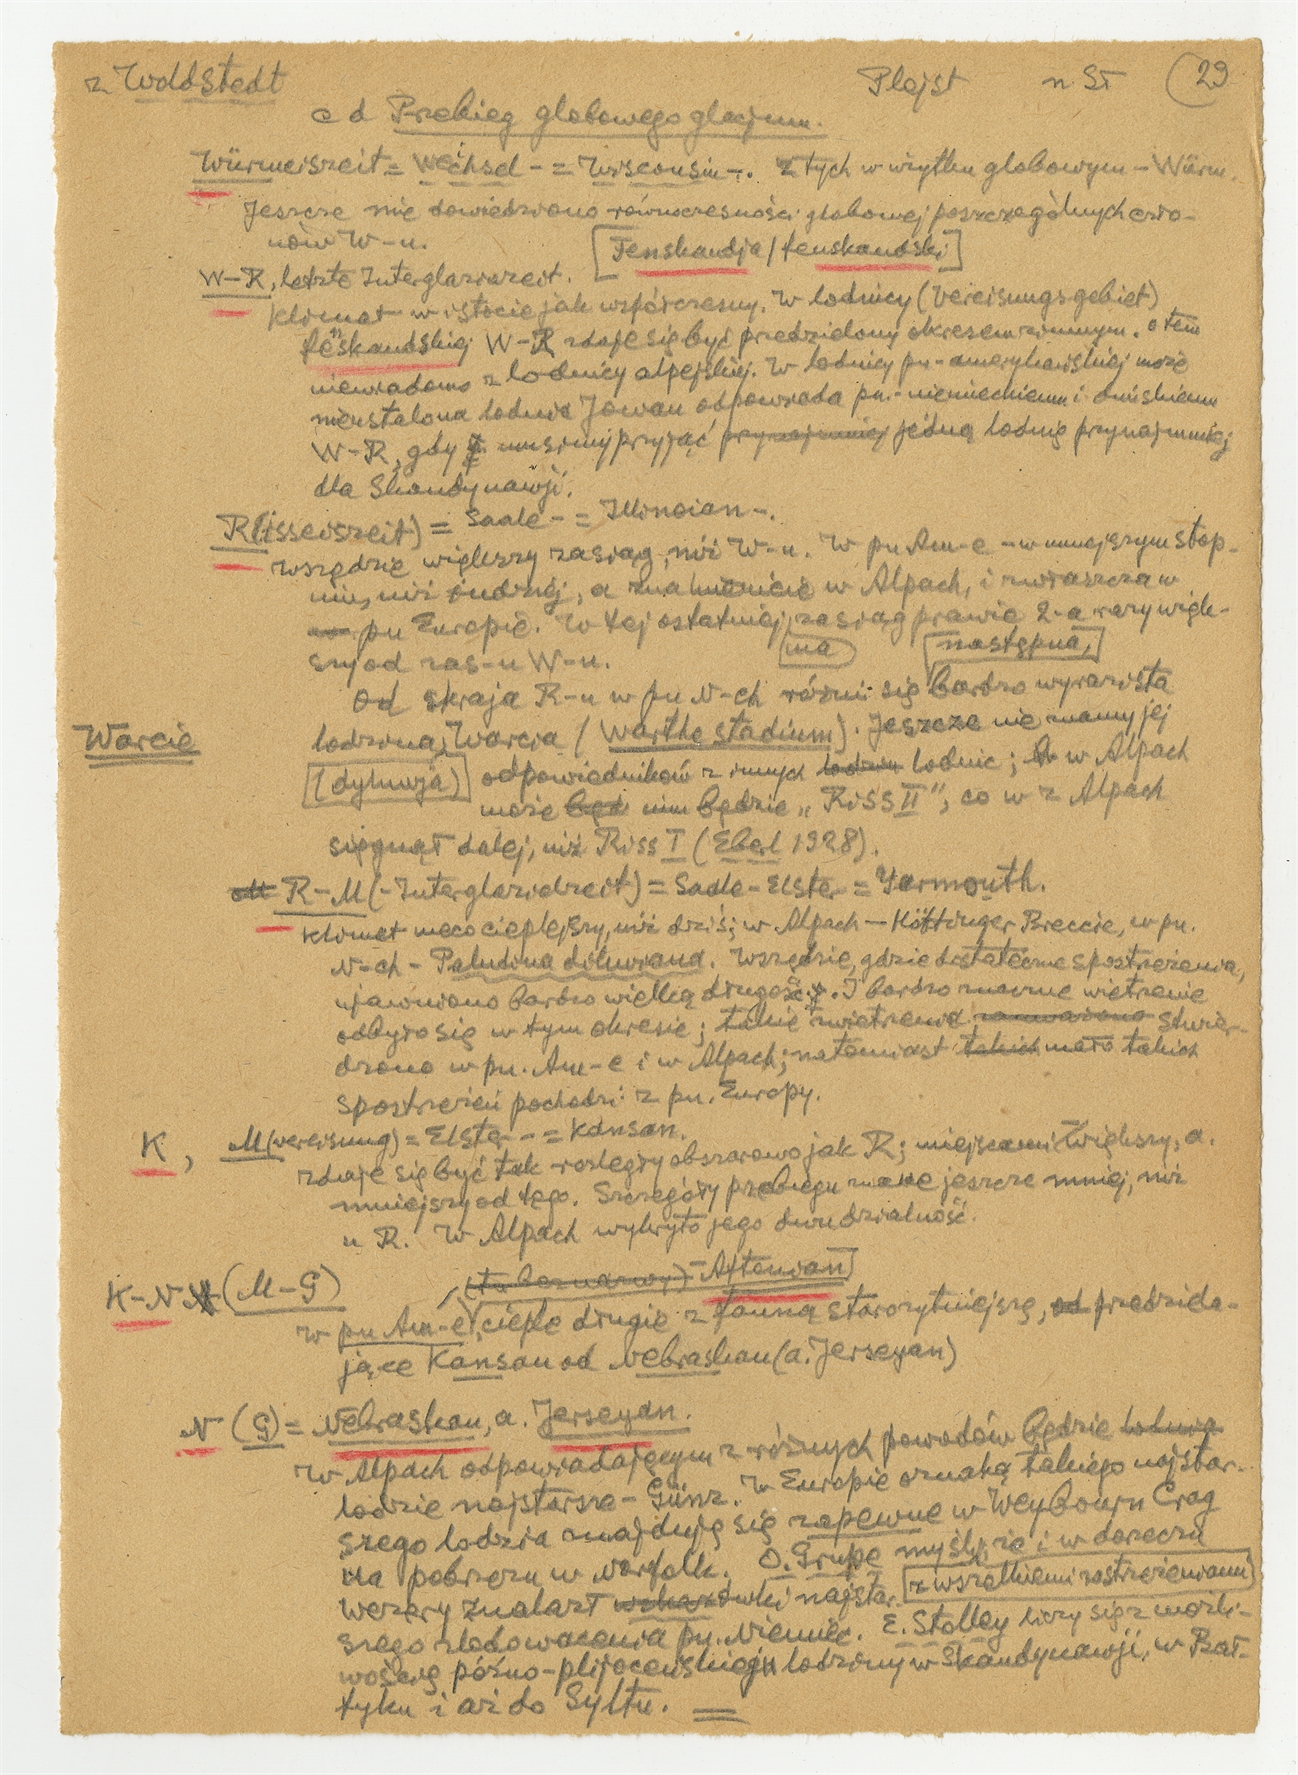 z Woldstedt Plejst n St 29
c d Przebieg globowego glacjum.
Würmeiszeit = Weichsel - = Wisconsin -. Z tych w użytku globowym - Würm.
Jeszcze nie dowiedziono równoczesności globowej poszczególnych czło-
nów W-u. [Fenskandja / fenskandski]
W-R, letzte Interglazialzeit.
Klimat w istocie jak współczesny. W lodnicy (Vereisungsgebiet)
fenskandskiej W-R zdaje się być przedzielony okresem zimnym. o tem
niewiadomo z lodnicy alpejskiej. W lodnicy pn-amerykańskiej może
nieustalona lodnia Jowan odpowiada pn.-niemieckiemu i duńskiemu
W-R, gdy musimy przyjąć przynajmniej jedną lodnię przynajmniej
dla Skandynawji.
R(isseiszeit) = Saale - = Illinoian -.
wszędzie większy zasiąg, niż W-u. W pn Am-e - w mniejszym stop-
niu, niż indziej, a znakomicie w Alpach, i zwłaszcza w
pn Europie. W tej ostatniej zasiąg prawie 2-a razy więk-
szy od zas-u W-u. ma następna,
Od skraja R-u w pn N-ch różni się bardzo wyrazista
Warcie lodzina, Warcja / Warthe stadium). Jeszcze nie znamy jej
(dyluwja) odpowiedników z innych lodnic; w Alpach
może nim będzie „Riss II", co w z Alpach
sięgnął dalej, niż Riss I (Ebel 1928).
R-M (-Interglazialzeit) = Saale-Elster = Yarmouth.
Klimat nieco cieplejszy, niż dziś; w Alpach - Höttinger Breccie, w pn.
N-ch - Paludina diluviana. Wszędzie, gdzie dostateczne spostrzeżenia,
ujawniono bardzo wielką długość. I bardzo znaczne wietrzenie
odbyło się w tym okresie; takie zwietrzenie stwier-
dzono w pn. Am-e i w Alpach; natomiast takich mało takich
spostrzeżeń pochodzi z pn. Europy.
K, M(vereisung) = Elster - = Kansan.
zdaje się być tak rozległy obszarowo jak R; miejscami większy, a.
mniejszy od tego. Szczegóły przebiegu znane jeszcze mniej, niż
u R. W Alpach wykryto jego dwudzialność.
K-N (M-G) (tu bez nazwy) - Aftonian
w pn Am-e, ciepłe drugie z fauną starożytniejszą, od przedziela-
jące Kansan od Nebraskan (a. Jerseyan)
N (G) = Nebraskan, a. Jerseyan.
W Alpach odpowiadającym z różnych powodów będzie lodnia
lodzie najstarsze - Günz. W Europie oznaką takiego najstar-
szego lodzia znajdują się zapewne w Weybourn Crag
na pobrzeżu w Norfolk. O. Grupe myśli, że i w dorzeczu
Wezery znalazł wskazówki najstar- z wszelkiemi zastrzeżeniami
szego zlodowacenia pn. Niemiec. E. Stolley liczy się z możli-
wością późno-plijoceńskiej lodziny w Skandynawji, w Bał-
tyku i aż do Syltu. =